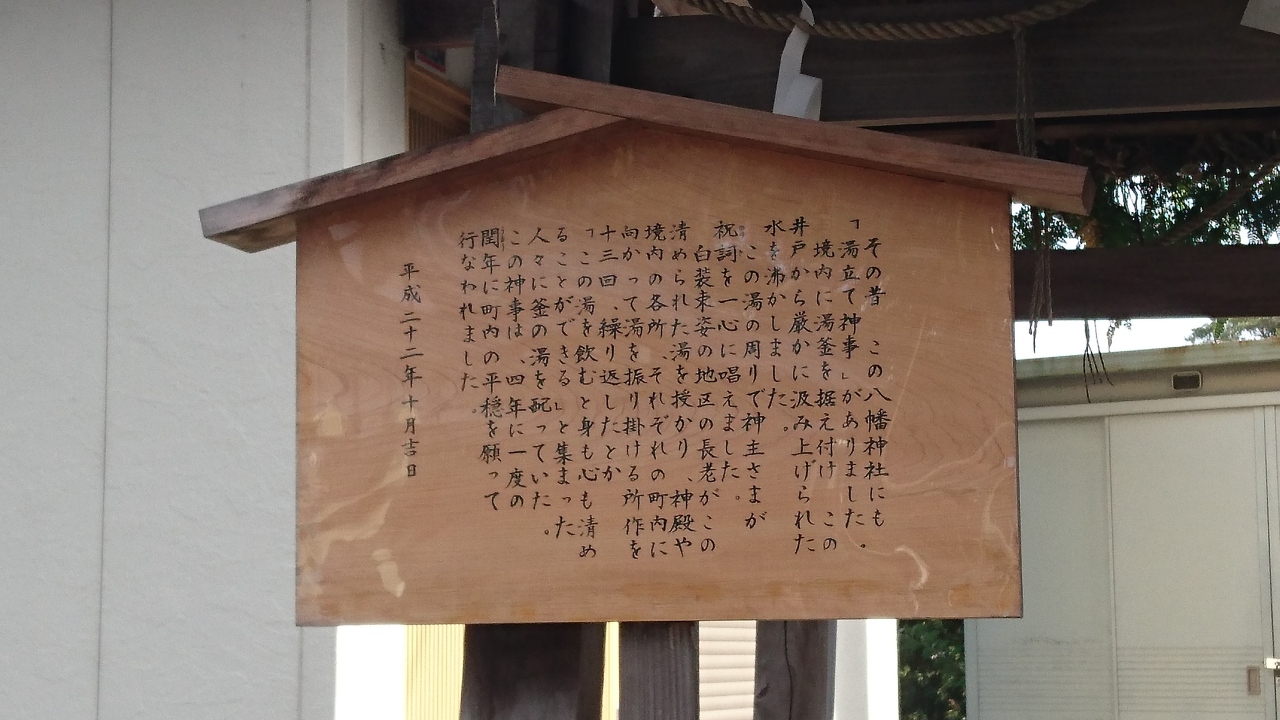 その昔 この八幡神社にも
「湯立て神事」がありました。
境内に湯釜を据え付け この
井戸から厳かに汲み上げられた
水を沸かしました。
この湯の周りで神主さまが
祝詞を一心に唱えました。
白装束姿の地区の長老がこの
清められた湯を授かり、神殿や
境内の各所、それぞれの町内に
向かって湯を振り掛ける所作を
十三回、繰り返したとか
「この湯を飲むと身も心も清め
ることができる」と集まった
人々に釜の湯を配っていた。
この神事は、四年に一度の
閏年に町内の平穏を願って
行なわれました。
平成二十二年十月吉日